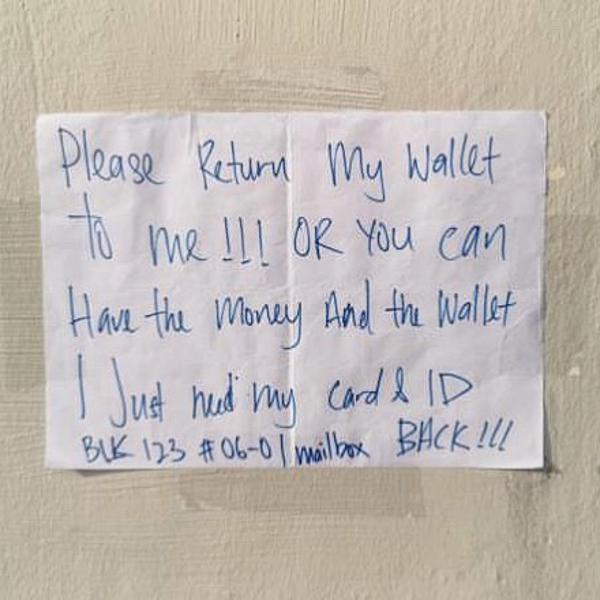 Please Return My Wallet
to me!!! OR YOU can
Have the Money And the Wallet
I Just need my card & ID
BLK 123 #06-01 mailbox BACK!!!